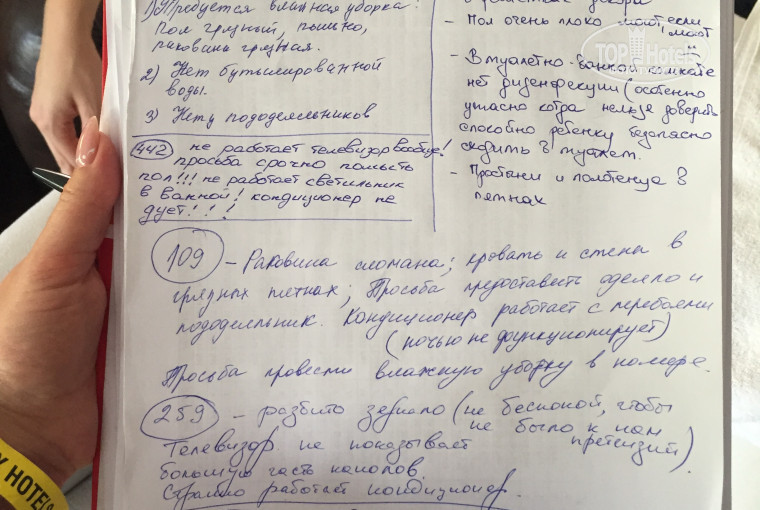 1) Требуется влажная уборка!
Пол грязный, пыльно,
раковина грязная.
2) Нет бутылированной
воды.
3) Нету пододеяльников
442 не работает телевизор вообще!
просьба срочно помыть
пол!!! не работает светильник
в ванной! кондиционер не
дует!!!
- Пол очень плохо моют, если
моют
- В туалетно-банной комнате
нет дизенфекции (особенно
ужасно когда нельзя доверить
спокойно ребенку безопасно
сходить в туалет.
- Простыни и полотенца в
пятнах
109 - Раковина сломана; кровать и стены в
грязных пятнах; Просьба предоставить одеяло и
пододеяльник. Кондиционер работает с перебоями
(ночью не функционирует)
Просьба провести влажную уборку в номере.
259 - разбито зеркало (не бесконой, чтобы
не было к нам
претензий)
Телевизор не показывает
большую часть каналов.
Странно работает кондиционер.
TOP Hotels
Y HOTEL